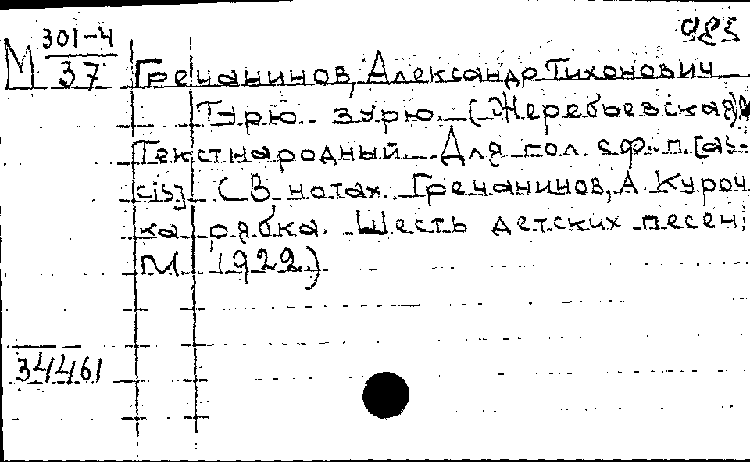 985
М 301-4
37
Гречанинов, Александр Тихонович
Тэрю зурю. (Жеребьевская)
Текст народный. Для гол. с ф.-п. [as-
cis] (В нотах Гречанинов, А. Куроч
ка рябка. Шесть детских песен;
М 1922)
34461